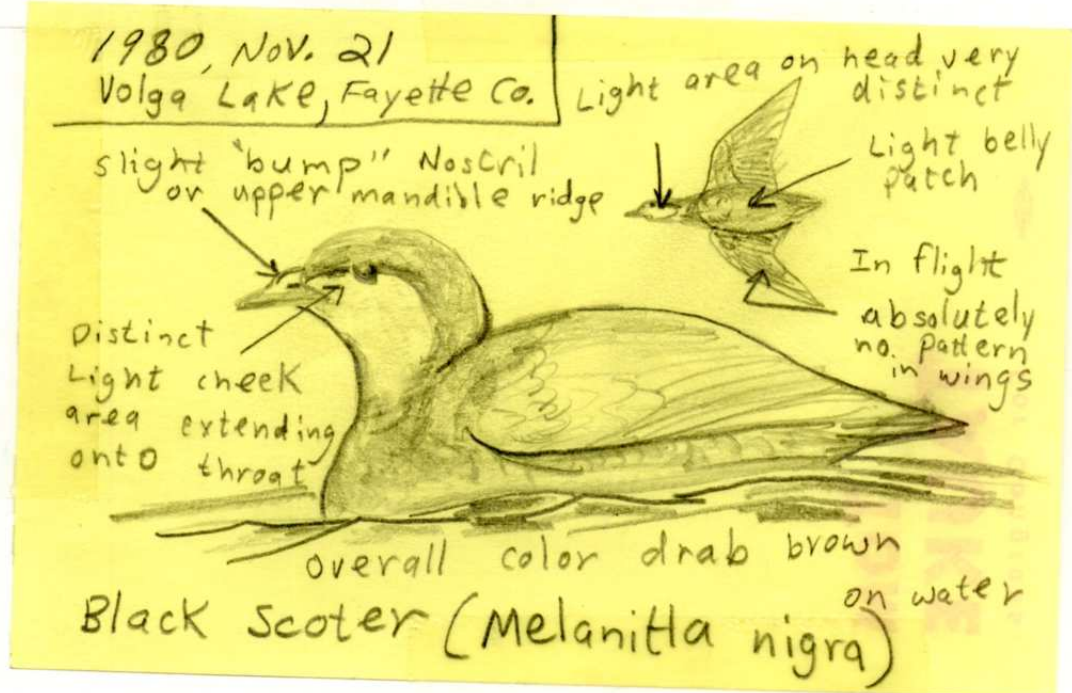 1980, Nov. 21
Volga Lake, Fayette Co.
Light area on head very
distinct
Light belly
patch
slight "bump" Nostril
or upper mandible ridge
In flight
absolutely
no pattern
in wings
Distinct
Light cheek
area extending
onto throat
overall color drab brown
on water
Black Scoter (Melanitta nigra)